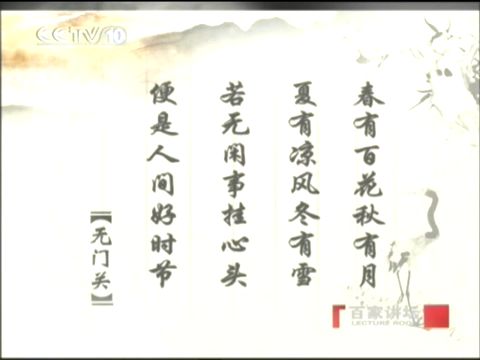 CCTV10
春有百花秋有月
夏有凉风冬有雪
若无闲事挂心头
便是人间好时节
【无门关】
百家讲坛
LECTURE ROOM